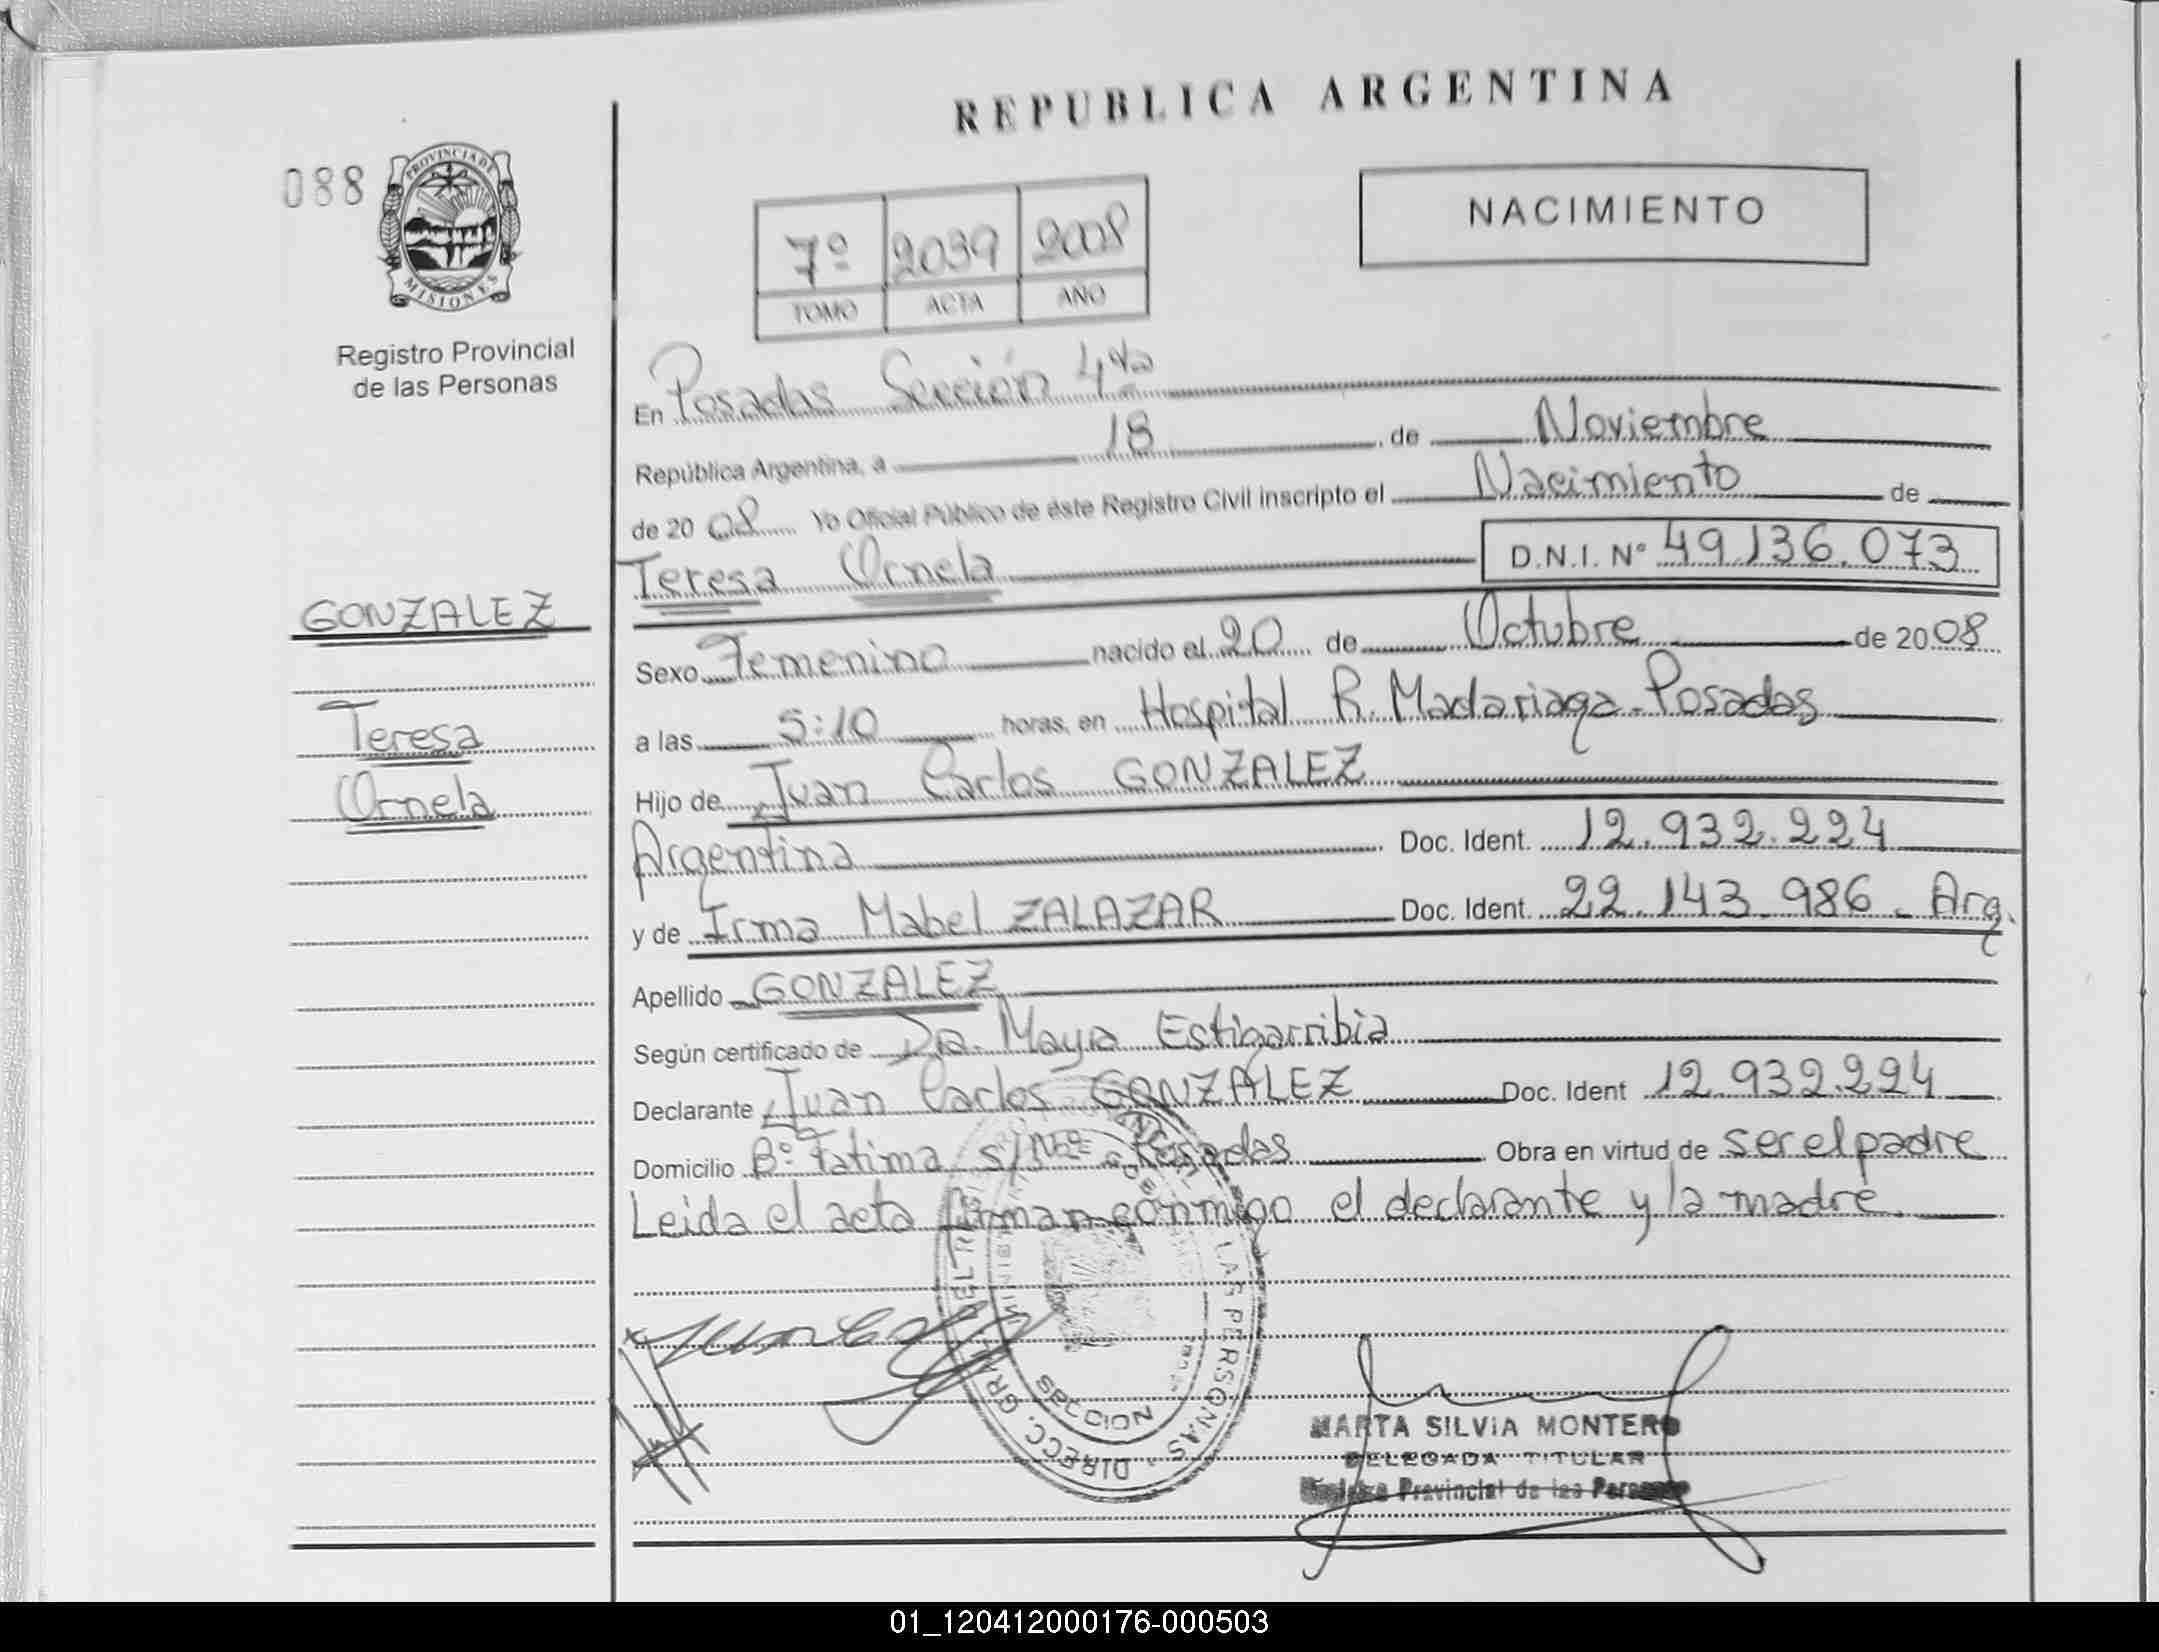 REPUBLICA ARGENTINA
088
PROVINCIA DE
MISIONES
Registro Provincial
de las Personas
7º 2039 2008
TOMO ACTA AÑO
NACIMIENTO
En Posadas Sección 4ta
República Argentina, a 18 de Noviembre
de 2008 Yo Oficial Público de éste Registro Civil inscripto el Nacimiento de
Teresa Ornela D.N.I. Nº 49.136.073
GONZALEZ
Teresa
Ornela
Sexo Femenino nacido el 20 de Octubre de 2008
a las 5:10 horas, en Hospital R. Madariaga - Posadas
Hijo de Juan Carlos GONZALEZ
Argentina Doc. Ident. 12.932.224
y de Irma Mabel ZALAZAR Doc. Ident. 22.143.986 - Arg.
Apellido GONZALEZ
Según certificado de Dra. Mayra Estigarribia
Declarante Juan Carlos GONZALEZ Doc. Ident 12.932.224
Domicilio Bº Fatima s/Nº - Posadas Obra en virtud de ser el padre
Leida el acta firman conmigo el declarante y la madre.
DIRECC. GRAL. DEL LAS PERSONAS
SECCION
MARTA SILVIA MONTERO
DELEGADA TITULAR
Provincial de las Personas
01_120412000176-000503